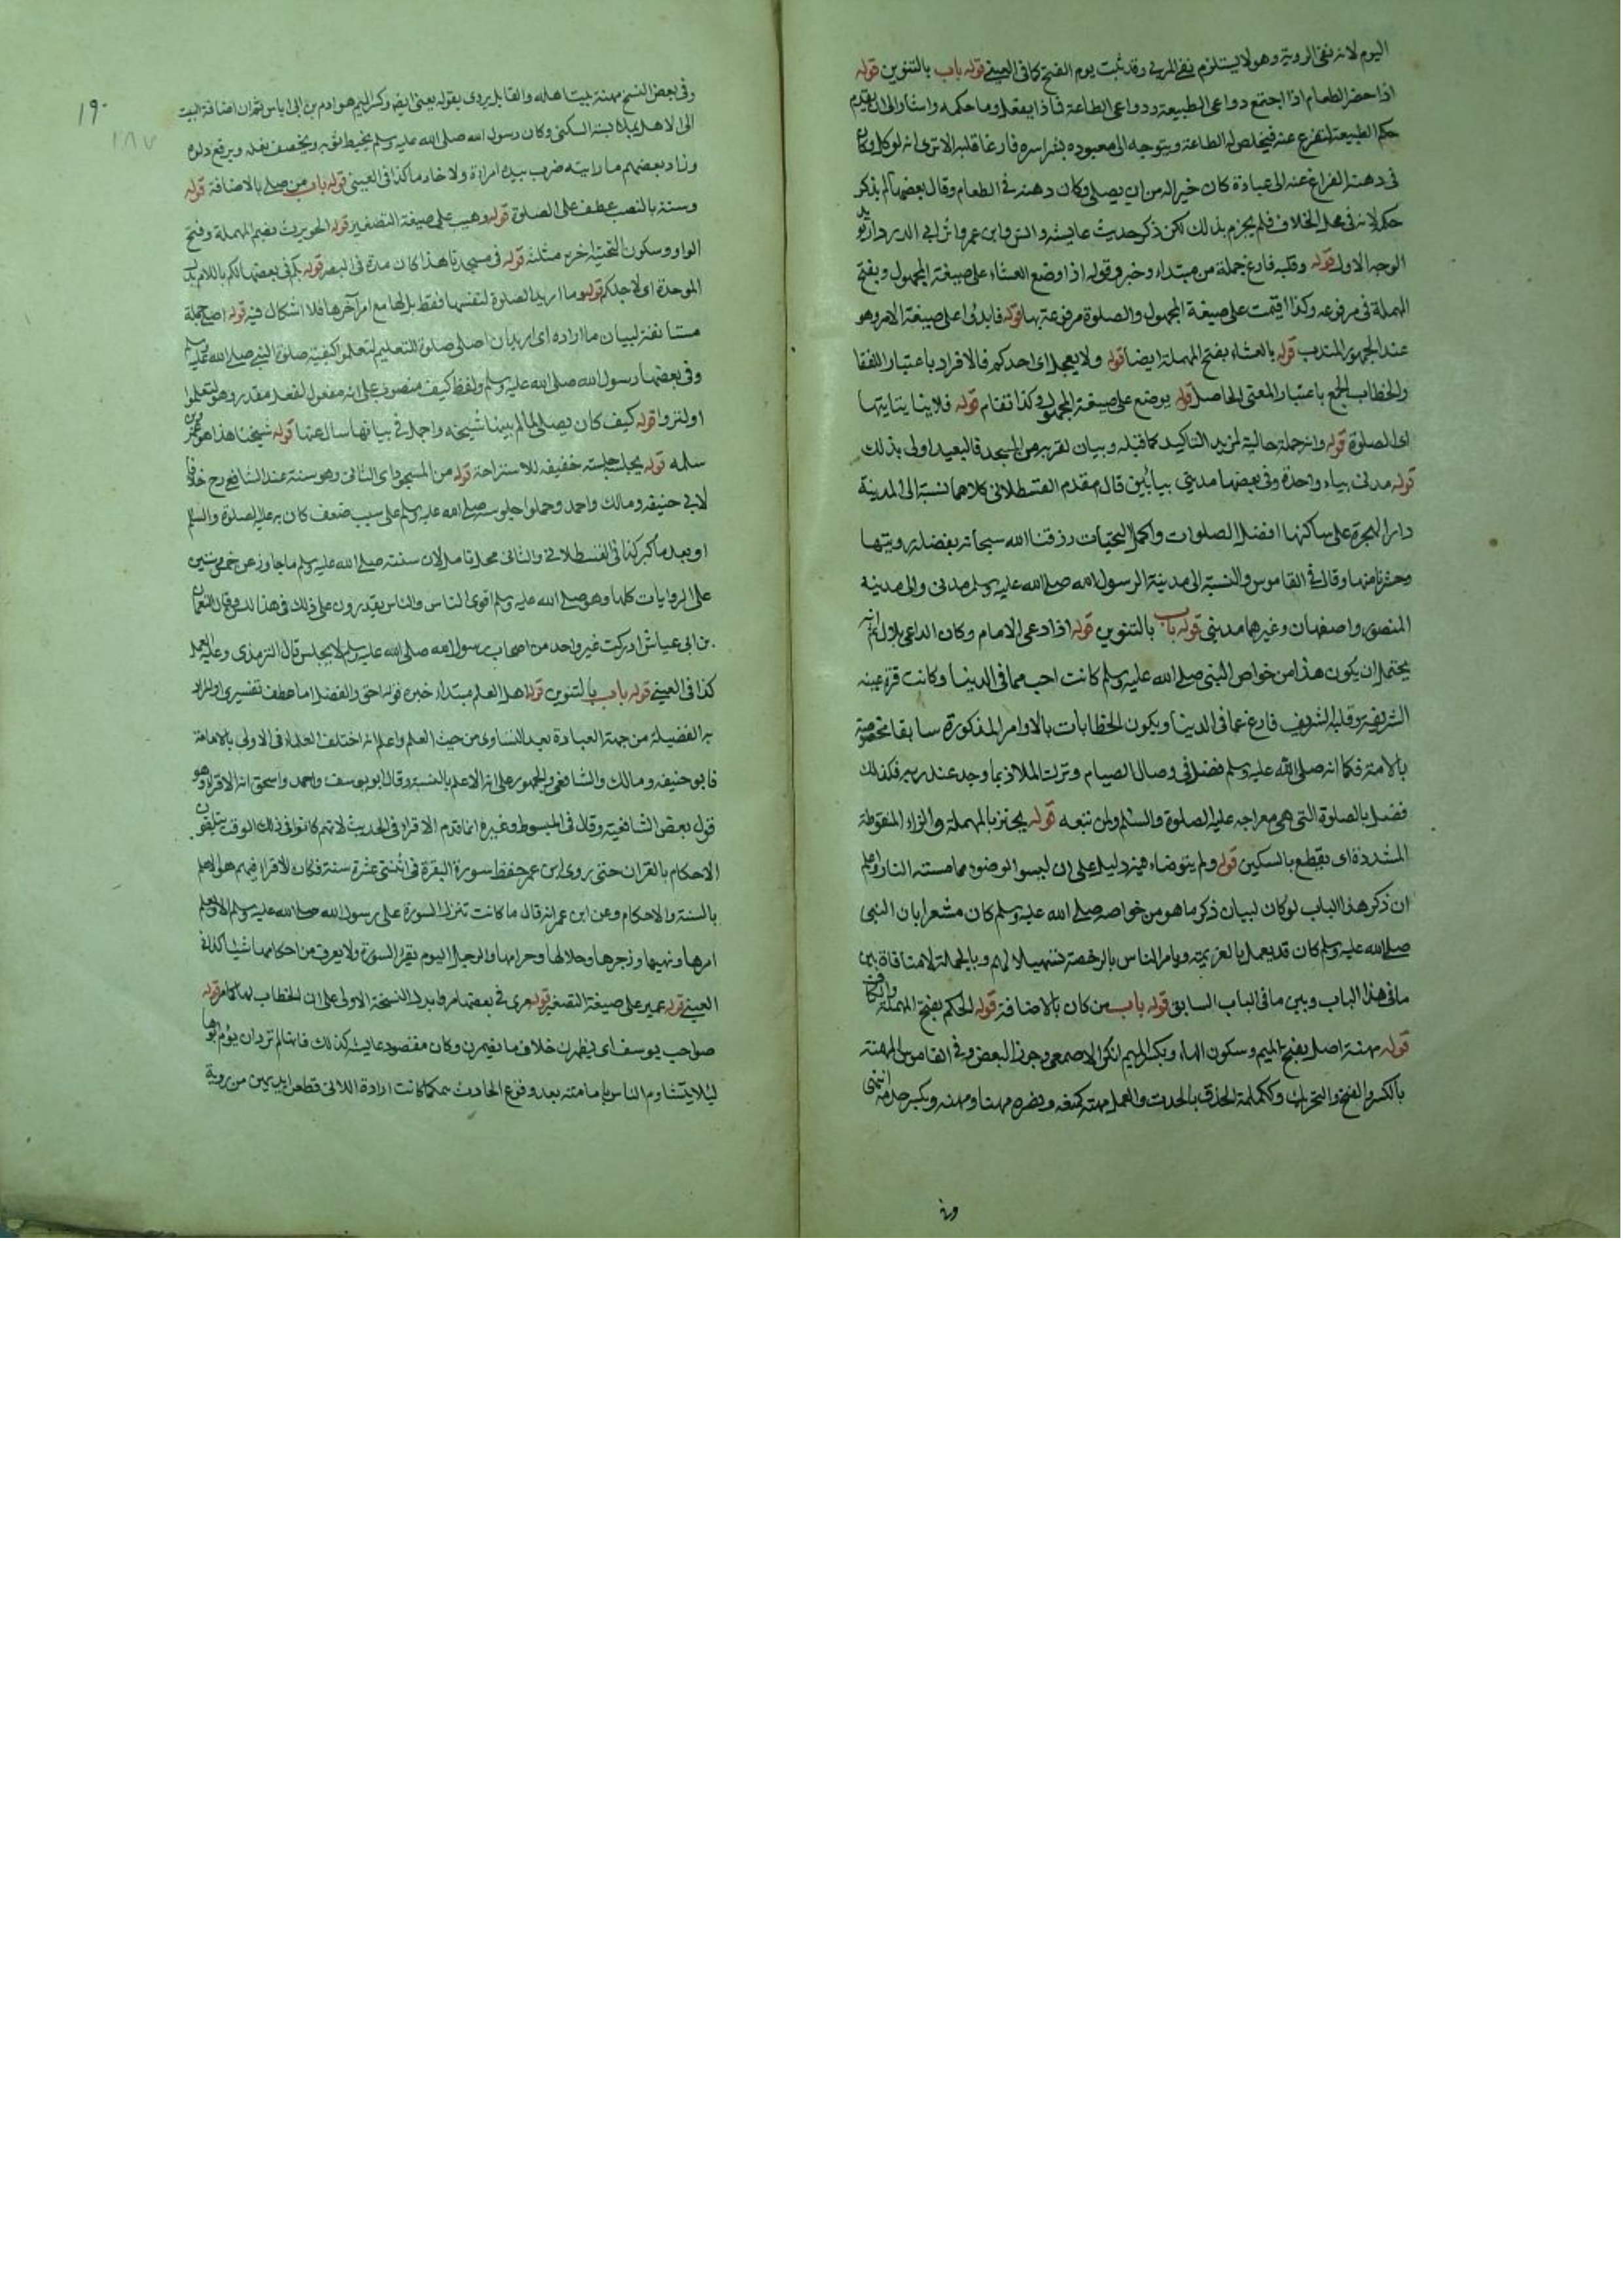 اليوم لانه نفى الروية وهو لا يستلزم نفى المرئى وقد ثبت يوم الفتح كما فى العينى قوله باب بالتنوين قوله
اذا حضر الطعام اذا اجتمع دواعى الطبيعة ودواعى الطاعة فماذا يفعل وما حكمه واشار الى ان يقدم
حكم الطبيعة ليتفرغ عنه فيخلص له الطاعة ويتوجه الى معبوده بشراسره فارغا قلبه الا ترى انه لو كل وكان
فى دهنه الفراغ عنه الى عبادة كان خيرا له من ان يصلى وكان دهنه فى الطعام وقال بعضهم لم يذكر
حكمه لانه فى محل الخلاف فلم يجزم بذلك لكن ذكر حديث عايشه وانس وابن عمر واثر ابى الدرداء
الوجه الاول قوله وقلبه فارغ جملة من مبتداء وخبر وقوله اذا وضع العشاء على صيغة المجهول وبفتح
المهملة فى مرفوعه وكذا اقيمت على صيغة المجهول والصلوة مرفوعة بها قوله فابدئوا على صيغة الامر وهو
عند الجمهور للندب قوله بالعشاء بفتح المهملة ايضا قوله ولا يعجل اى احدكم فالافراد باعتبار اللفظ
والخطاب الجمع باعتبار المعنى الحاصل قوله يوضع على صيغة المجهول وكذا تقام قوله فلا يأتيها
اى الصلوة قوله وانه جملة حالية لمزيد التاكيد كما قبله وبيان لقربه من المسجد فالبعيد اولى بذلك
قوله مدنى بياء واحدة وفى بعضها مدينى بيائين قال مقدم القسطلانى كلاهما نسبة الى المدينة
دار الهجرة على ساكنها افضل الصلوات واكمل التحيات رزقنا الله سبحانه بفضله رويتها
وحشرنا منها وقال فى القاموس والنسبة الى مدينة الرسول الله صلى الله عليه وسلم مدنى والى مدينة
المنصور واصفهان وغيرهما مدينى قوله باب بالتنوين قوله اذا دعى الامام وكان الداعى بلال
يحتمل ان يكون هذا من خواص النبى صلى الله عليه وسلم كانت احب مما فى الدينا وكانت قرة عينه
الشريفة وقلبه الشريف فارغ عما فى الدينا ويكون الخطابات بالاوامر المذكورة سابقا مخصوصة
بالامة فكما انه صلى الله عليه وسلم فضل فى وصال الصيام وترك الملاذ بما وجد عند ربه فكذلك
فضل بالصلوة التى هى معراجه عليه الصلوة والسلم ولمن تبعه قوله يحتز بالمهملة والزاء المنقوطة
المشددة اى يقطع بالسكين قوله ولم يتوضاء فيه دليل على ان ليس الوضوء مما مسته النار واعلم
ان ذكر هذا الباب لو كان لبيان ذكر ما هو من خواصه صلى الله عليه وسلم كان مشعرا بان النبى
صلى الله عليه وسلم كان قد يعمل بالعزيمة ويامر الناس بالرخصة تسهيلا لهم وبالجملة لا منافاة بين
ما فى هذا الباب وبين ما فى الباب السابق قوله باب من كان بالاضافة قوله الحكم بفتح المهملة والكاف
قوله مهنة اصله بفتح الميم وسكون الهاء وبكسر الميم انكره الاصمعى وجوزه البعض وفى القاموس المهنة
بالكسر والفتح والتحريك وككلمة الحذق بالخدمة والعمل مهنه كمنعه ونصره مهنا ومهنة وبكسر خدمه انتهى
وفى
١٩٠
١٨٧
وفى بعض النسخ مهنة بيت اهله والقابل يردى بقوله يعنى ايضا وكسر الميم هو ادم بن ابى اياس ثم ان اضافة البيت
الى الاهل بملابسة السكنى وكان رسول الله صلى الله عليه وسلم يخيط ثوبه ويخصف نعله ويرفع دلوه
وزاد بعضهم ما رايته ضرب بيده امراة ولا خادما كذا فى العينى قوله باب من صلى بالاضافة قوله
وسنته بالنصب عطف على الصلوة قوله وهيب على صيغة التصغير قوله الحويرث بضم المهملة وفتح
الواو وسكون التحتية اخره مثلثة قوله فى مسجدنا هذا كان مدة فى البصره قوله بكم فى بعضها لكم باللام بدل
الموحدة اى لاجلكم قوله وما اريد الصلوة لنفسها فقط بل لها مع امر آخر ها فلا اشكال فيه قوله اصلى جملة
مستانفة لبيان ما اراده اى اريد ان اصلى صلوة للتعليم لتعلموا كيفية صلوة النبى صلى الله عليه وسلم
وفى بعضها رسول الله صلى الله عليه وسلم ولفظ كيف منصوب على انه مفعول لفعل مقدر وهو ليتعلموا
او لتروا قوله كيف كان يصلى لما لم يبينا شيخه واجمل فى بيانها سال عنها قوله شيخنا هذا هو عمرو بن
سلمه قوله يجلس جلسة خفيفة للاستراحة قوله من السجود اى الثانى وهو سنة عند الشافعى رح خلافا
لابى حنيفه ومالك واحمد وحملوا جلوسه صلى الله عليه وسلم على سبب ضعف كان به عليه الصلوة والسلم
او بعد ما كبر كذا فى القسطلانى والثانى محل تامل لان سنه صلى الله عليه وسلم ما جاوز عن خمس وستين
على الروايات كلها وهو صلى الله عليه وسلم اقوى الناس والناس يقدرون على ذلك فى هذا السن وقال النعمان
بن ابى عياش ادركت غير واحد من اصحاب رسول الله صلى الله عليه وسلم لا يجلس قال الترمذى وعليه العمل
كذا فى العينى قوله باب بالتنوين قوله اهل العلم مبتداء خبره قوله احق والفضل اما عطف تفسيرى او المراد
به الفضيلة من جهة العبادة بعد التساوى من حيث العلم واعلم انه اختلف العلماء فى الاولى بالامامة
فابو حنيفه ومالك والشافعى والجمهور على انه الاعلم بالسنة وقال ابو يوسف واحمد واسحق انه الاقراء وهو
قول بعض الشافعية وقال فى المبسوط وغيره انما قدم الاقراء فى الحديث لانهم كانوا فى ذلك الوقت يتلقون
الاحكام بالقران حتى روى ابن عمر حفظ سورة البقرة فى اثنتى عشرة سنة فكان الاقراء فيهم هو الاعلم
بالسنة والاحكام وعن ابن عمر انه قال ما كانت تنزل السورة على رسول الله صلى الله عليه وسلم الا ونعلم
امرها ونهيها وزجرها وحلالها وحرامها والرجل اليوم يقرا السورة ولا يعرف من احكامها شيئا كذا فى
العينى قوله عمير على صيغة التصغير قوله مرى فى بعضها مروا بدل النسخة الاولى على ان الخطاب لها كما مر قوله
صواحب يوسف اى يظهرن خلاف ما يضمرن وكان مقصود عايشه كذلك فانها لم ترد ان يؤم ابوها
ليلا يتشاوم الناس بامامته بعد وقوع الحادث بمكما كانت ارادة اللاتى قطعن ايديهن من روية